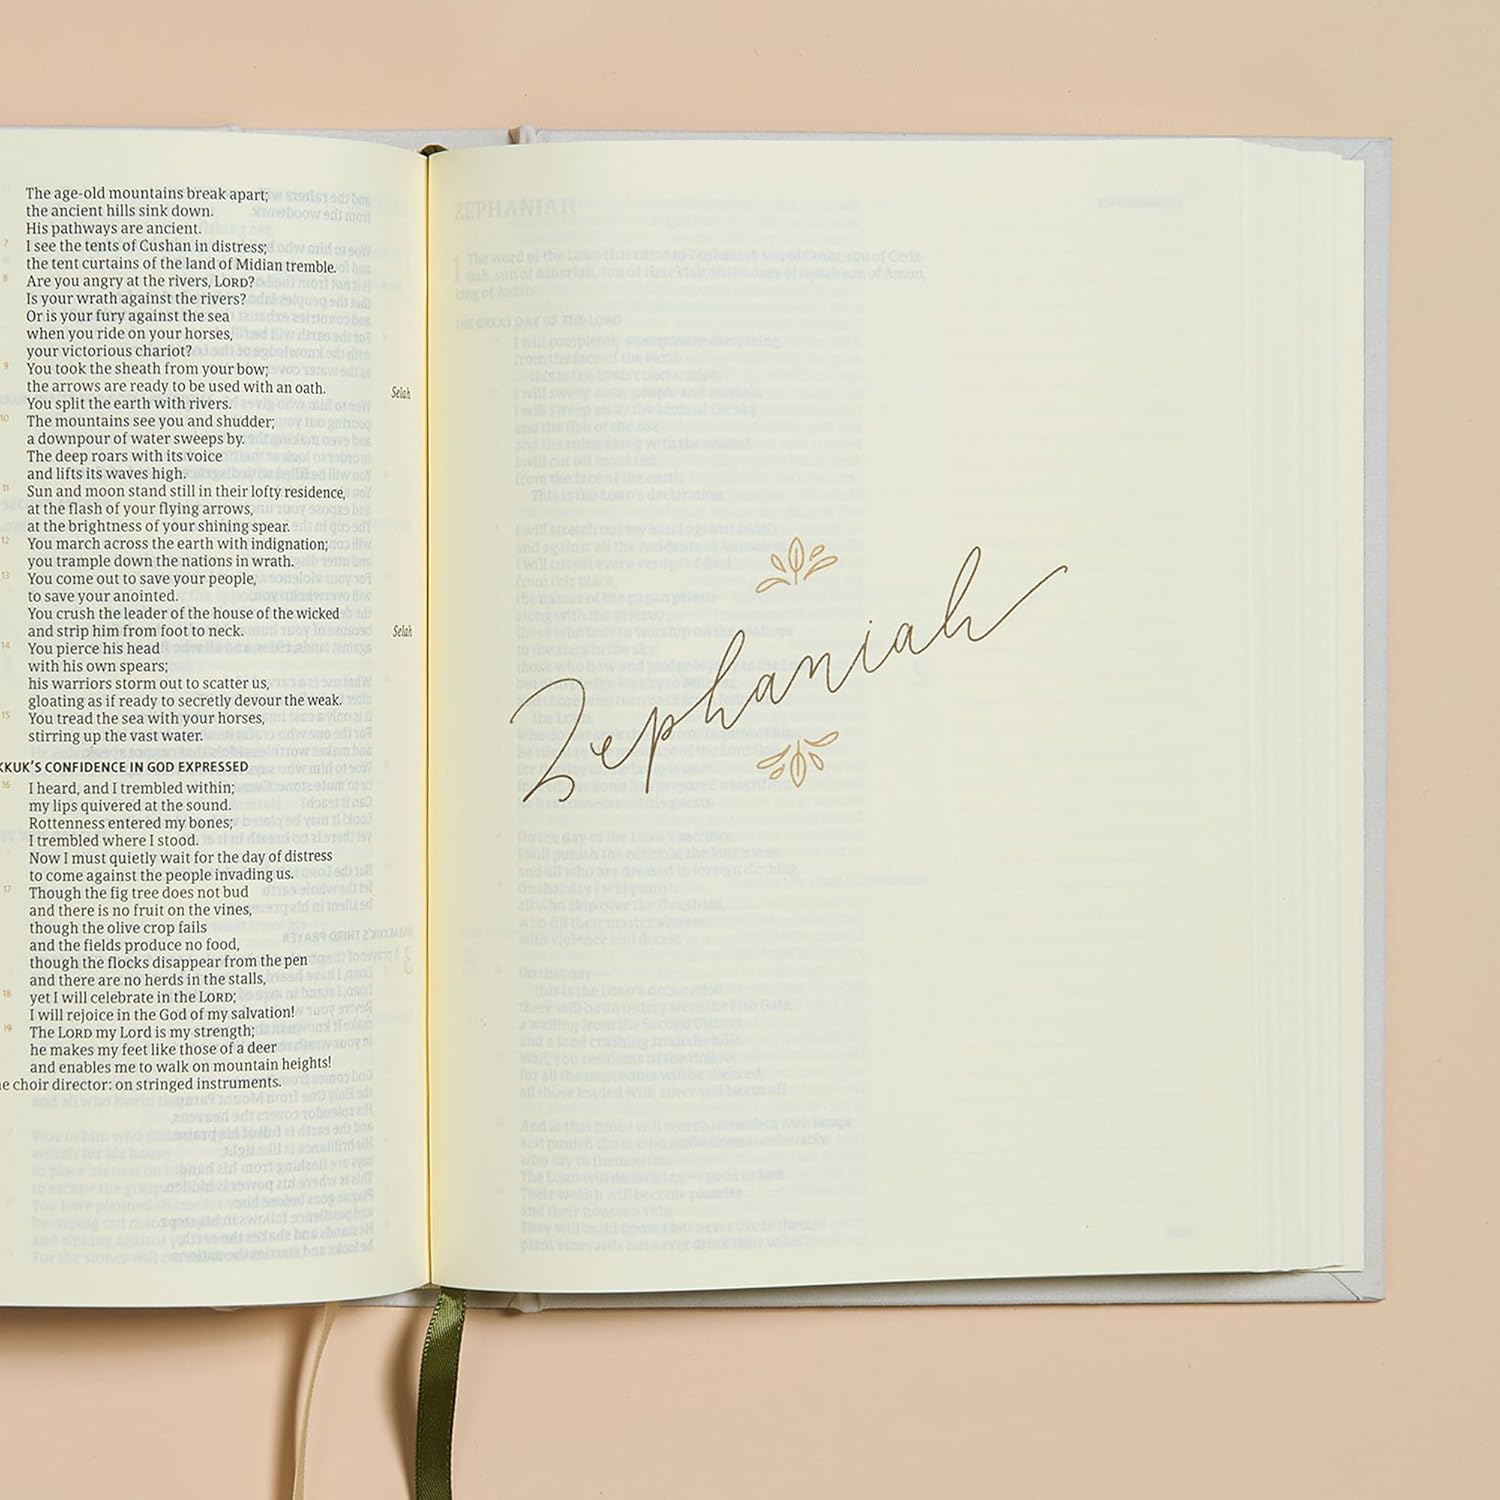 The age-old mountains break apart;
the ancient hills sink down.
His pathways are ancient.
7 I see the tents of Cushan in distress;
the tent curtains of the land of Midian tremble.
8 Are you angry at the rivers, LORD?
Is your wrath against the rivers?
Or is your fury against the sea
when you ride on your horses,
your victorious chariot?
9 You took the sheath from your bow;
the arrows are ready to be used with an oath. Selah
You split the earth with rivers.
10 The mountains see you and shudder;
a downpour of water sweeps by.
The deep roars with its voice
and lifts its waves high.
11 Sun and moon stand still in their lofty residence,
at the flash of your flying arrows,
at the brightness of your shining spear.
12 You march across the earth with indignation;
you trample down the nations in wrath.
13 You come out to save your people,
to save your anointed.
You crush the leader of the house of the wicked
and strip him from foot to neck. Selah
14 You pierce his head
with his own spears;
his warriors storm out to scatter us,
gloating as if ready to secretly devour the weak.
15 You tread the sea with your horses,
stirring up the vast water.
KKUK'S CONFIDENCE IN GOD EXPRESSED
16 I heard, and I trembled within;
my lips quivered at the sound.
Rottenness entered my bones;
I trembled where I stood.
Now I must quietly wait for the day of distress
to come against the people invading us.
17 Though the fig tree does not bud
and there is no fruit on the vines,
though the olive crop fails
and the fields produce no food,
though the flocks disappear from the pen
and there are no herds in the stalls,
18 yet I will celebrate in the LORD;
I will rejoice in the God of my salvation!
19 The LORD my Lord is my strength;
he makes my feet like those of a deer
and enables me to walk on mountain heights!
e choir director: on stringed instruments.
Zephaniah